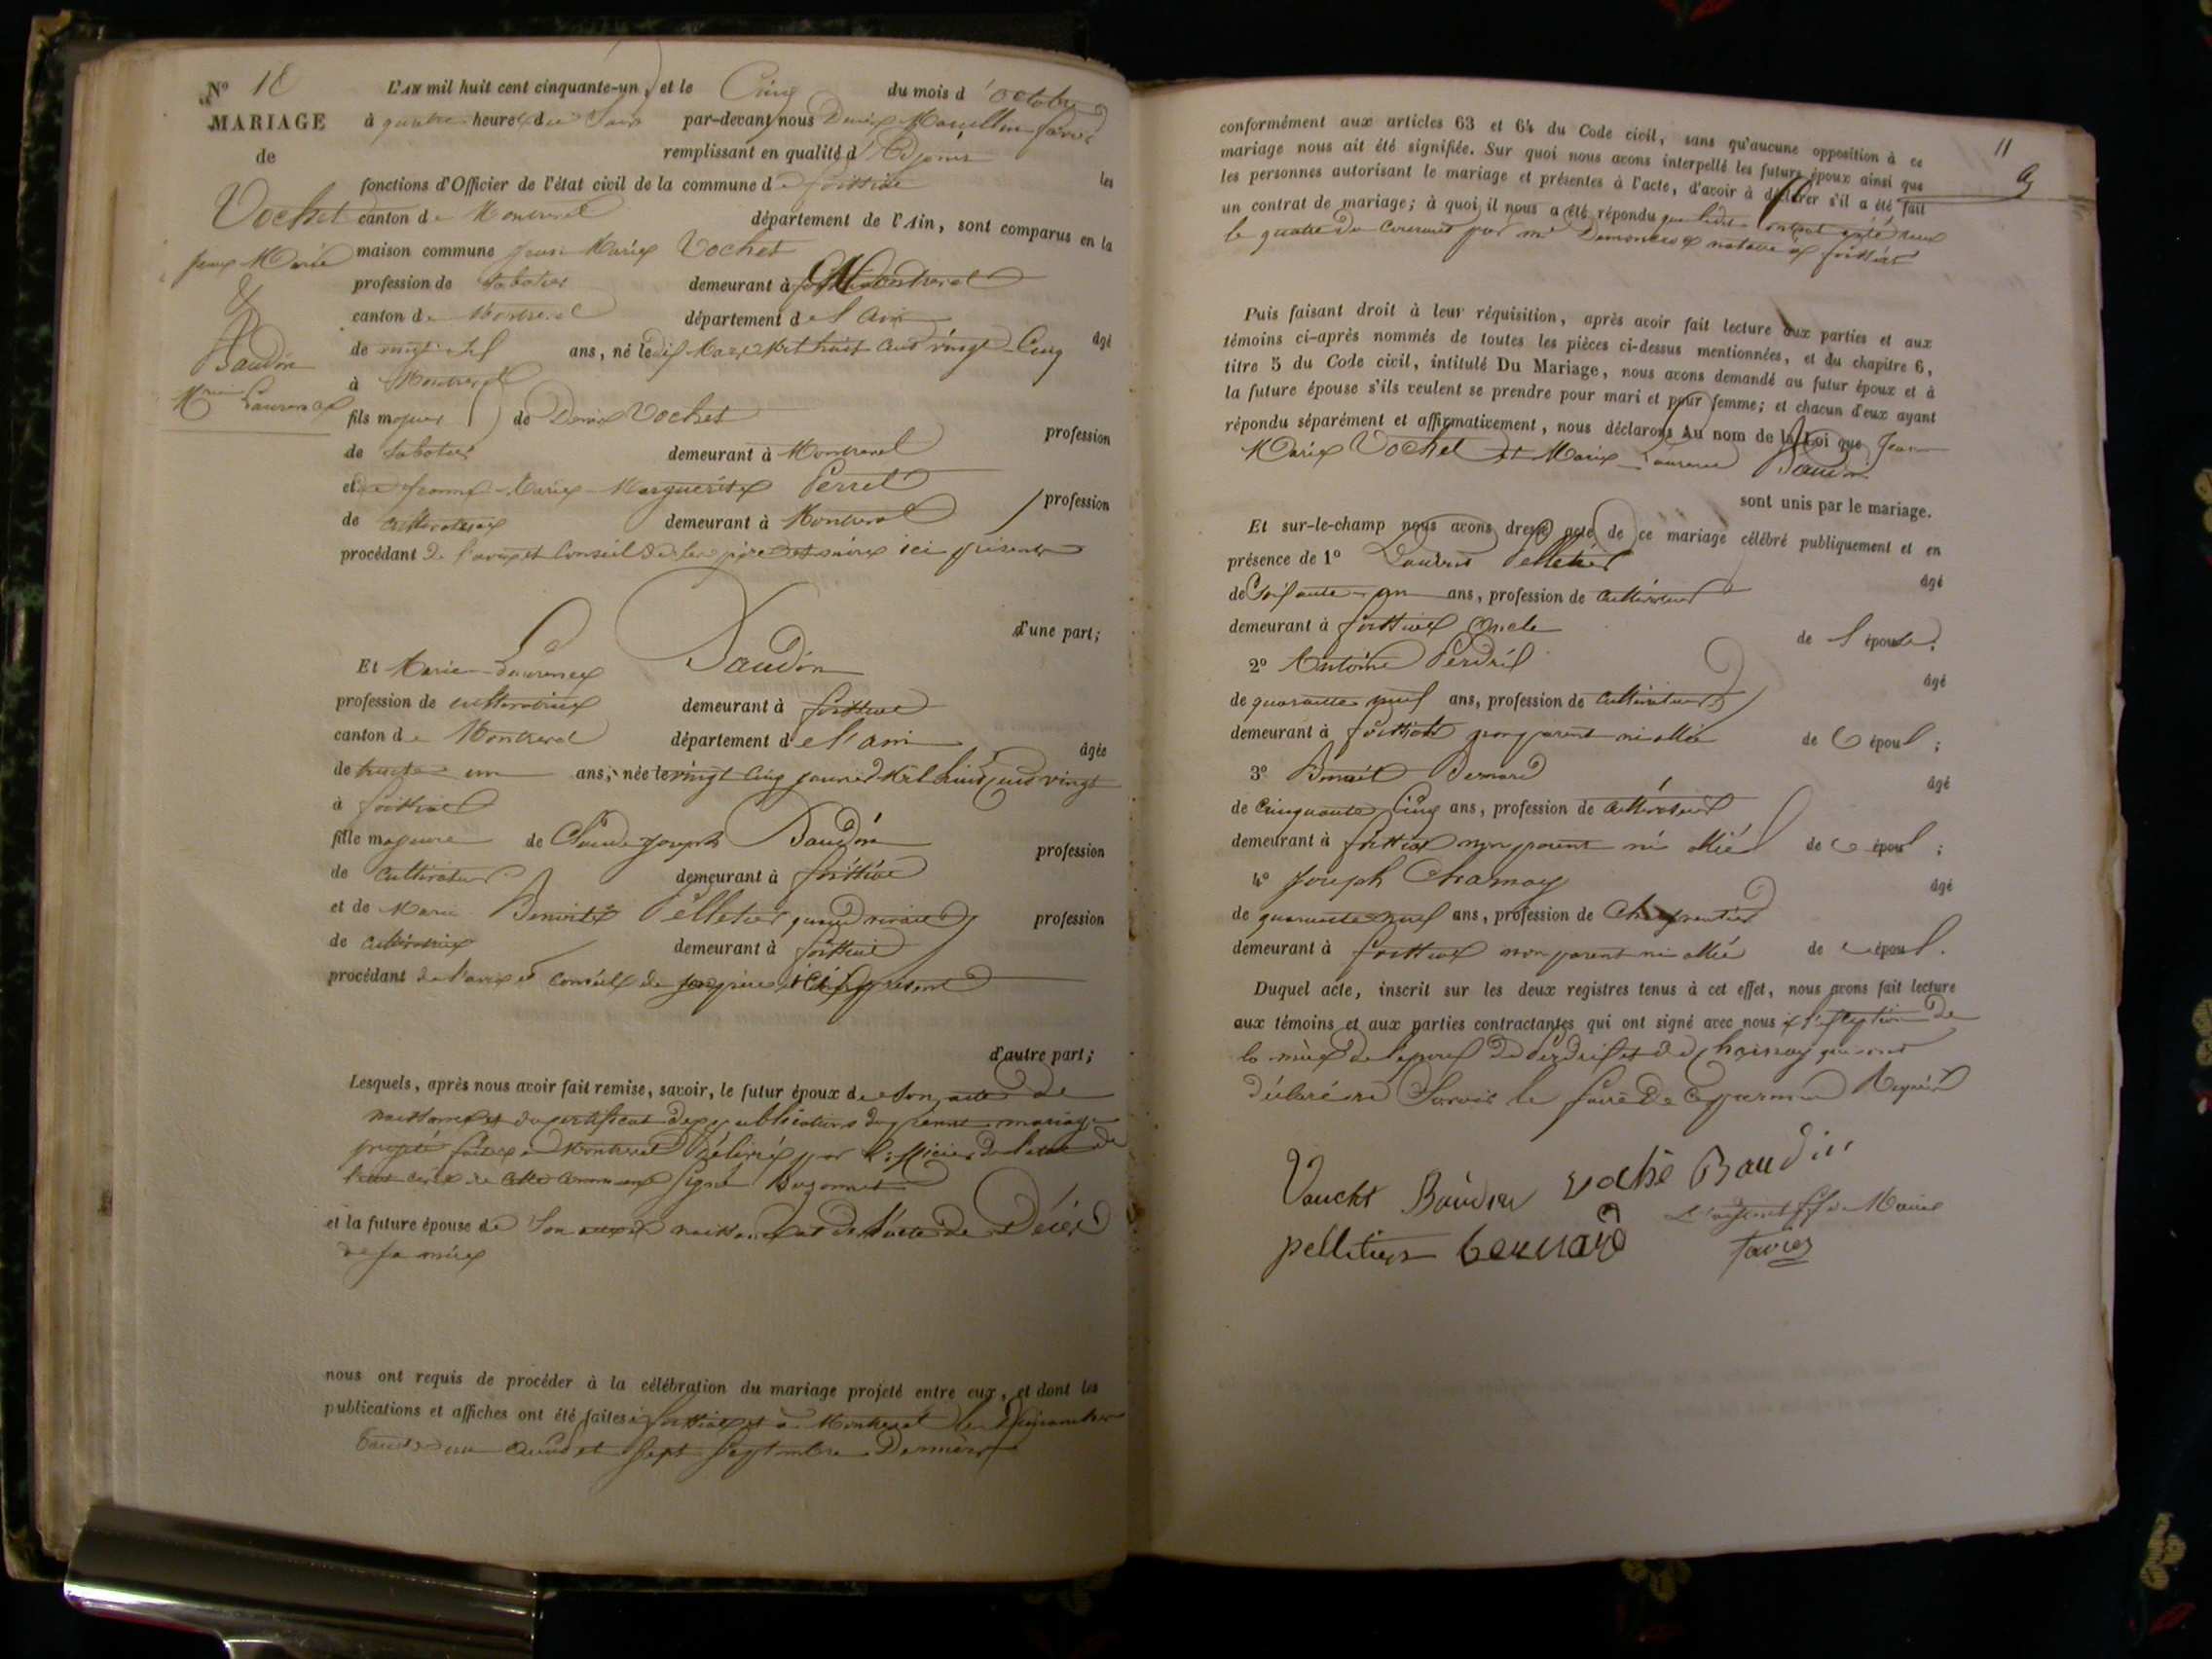 N° 18
MARIAGE
de
Vochet
Jean Marie
&
Baudin
Mie Laurence
L'AN mil huit cent cinquante-un, et le Cinq du mois d'octobre
à quatre heures du Soir par-devant nous Denis Marcellin favier
remplissant en qualité d'Adjoint les
fonctions d'Officier de l'état civil de la commune de
canton de Montrevel département de l'Ain, sont comparus en la
maison commune Jean Marie Vochet
profession de Sabotier demeurant à Montrevel
canton de Montrevel département de l'Ain âgé
de vingt six ans, né le dix Mars Mil huit cent vingt Cinq
à Montrevel
fils majeur de Denis Vochet profession
de Sabotier demeurant à Montrevel
et de Jeanne Marie Marguerite Perret profession
de cultivatrice demeurant à Montrevel
procédant de l'avis et Conseil de ses père et mère ici présents
d'une part;
Et Marie Laurence Baudin
profession de cultivatrice demeurant à
canton de Montrevel département de l'ain âgée
de trente un ans, née le vingt Cinq janvier Mil huit cent vingt
à
fille majeure de Claude Joseph Baudin profession
de Cultivateur demeurant à
et de Marie Benoite Pelletier quand vivait profession
de cultivatrice demeurant à
procédant de l'avis et conseil de son père ici présent
d'autre part;
Lesquels, après nous avoir fait remise, savoir, le futur époux de son acte de
naissance et du certificat des publications du présent mariage
projeté faites à Montrevel Délivré par l'officier de l'état
civil de cette commune Signé
et la future épouse de Son acte de naissance et de l'acte de Décès
de sa mère
nous ont requis de procéder à la célébration du mariage projeté entre eux, et dont les
publications et affiches ont été faites à et à Montrevel les Dimanches
trente un août et Sept Septembre Derniers
11
conformément aux articles 63 et 64 du Code civil, sans qu'aucune opposition à ce
mariage nous ait été signifiée. Sur quoi nous avons interpellé les futurs époux ainsi que
les personnes autorisant le mariage et présentes à l'acte, d'avoir à déclarer s'il a été fait
un contrat de mariage; à quoi il nous a été répondu que ledit Contrat a été reçu
le quatre du Courant par me notaire à
Puis faisant droit à leur réquisition, après avoir fait lecture aux parties et aux
témoins ci-après nommés de toutes les pièces ci-dessus mentionnées, et du chapitre 6,
titre 5 du Code civil, intitulé Du Mariage, nous avons demandé au futur époux et à
la future épouse s'ils veulent se prendre pour mari et pour femme; et chacun d'eux ayant
répondu séparément et affirmativement, nous déclarons Au nom de la Loi que Jean
Marie Vochet et Marie Laurence Baudin
sont unis par le mariage.
Et sur-le-champ nous avons dressé acte de ce mariage célébré publiquement et en
présence de 1° Laurent Pelletier âgé
de Soixante un ans, profession de Cultivateur
demeurant à Oncle de l'épouse;
2° Antoine Perdrix âgé
de quarante neuf ans, profession de Cultivateur
demeurant à non parent ni allié de l'époux;
3° Benoit Bernard âgé
de Cinquante Cinq ans, profession de Cultivateur
demeurant à non parent ni allié de l'époux;
4° Joseph Charnay âgé
de quarante neuf ans, profession de Charpentier
demeurant à non parent ni allié de l'époux.
Duquel acte, inscrit sur les deux registres tenus à cet effet, nous avons fait lecture
aux témoins et aux parties contractantes qui ont signé avec nous à l'exception de
la mère de l'époux de Perdrix et de Charnay qui ont
déclaré ne Savoir le faire De Ce Requis
Vauche Baudin voche Baudin
pelletier bernard L'adjoint ff de Maire
favier